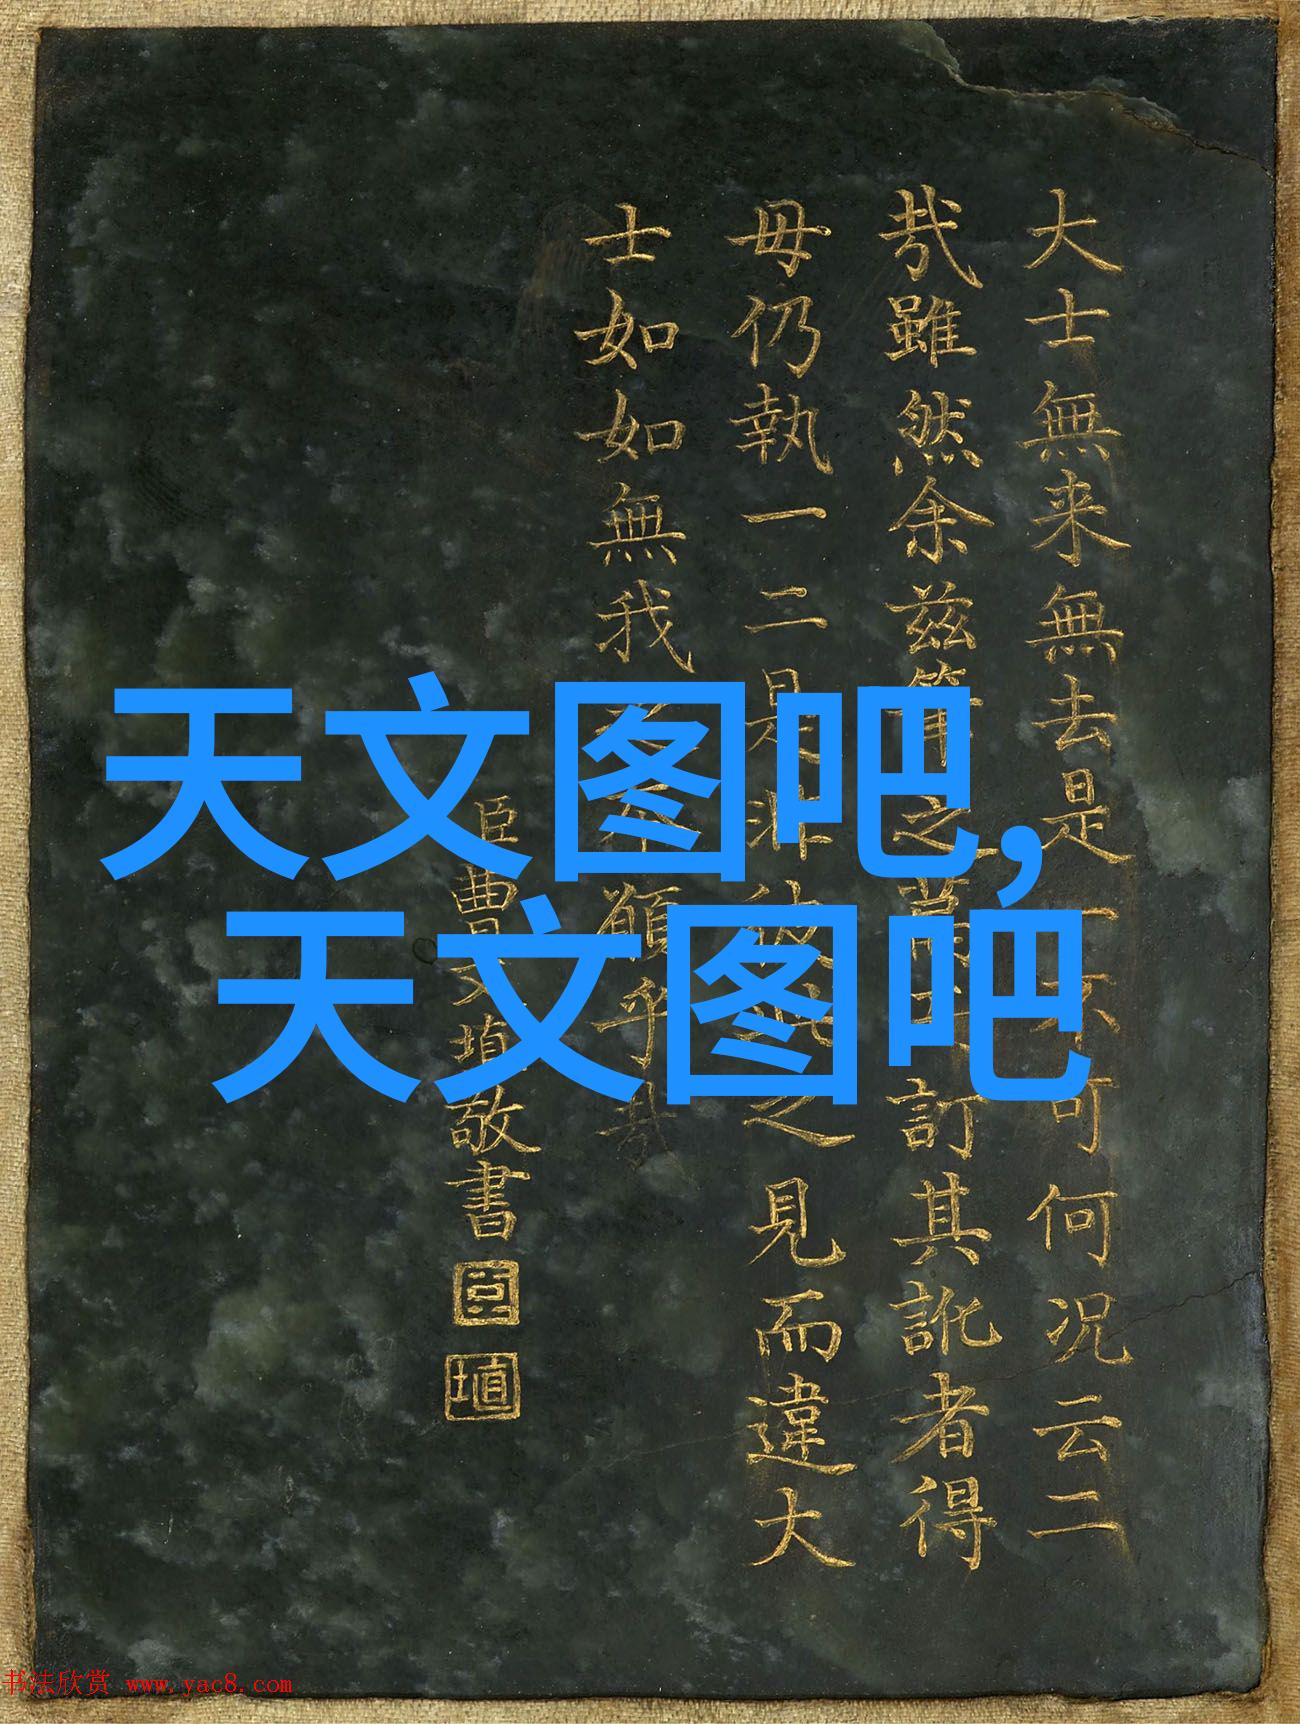 大士無来無去是一
可何况云二
㢤雖然余兹
之
訂其訛者得
毋仍執一二是非彼此之見而違大
士如如無我
願乎㢤
臣曹文埴敬書
臣
埴
天文图吧,
天文图吧
书法欣赏 www.yac8.com